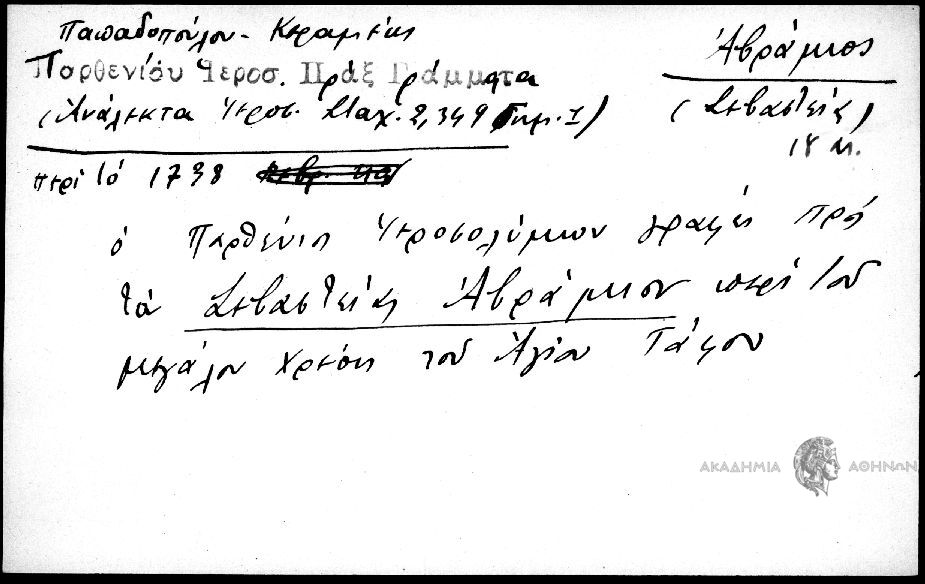 Παπαδοπούλου - Κεραμέως
Παρθενίου Ἱεροσ. Πράξ Γράμματα
Ἀβράμιος
(Ἀνάλεκτα Ἱεροσ. Σταχ. 2, 349 Τμημ. 1)
(Σεβαστείας)
18 αι.
περὶ τὸ 1738
ὁ Παρθένιος Ἱεροσολύμων γράφει πρὸς
τὸ Σεβαστείας Ἀβράμιον περὶ τοῦ
μεγάλου χρέους τοῦ Ἁγίου Τάφου
ΑΚΑΔΗΜΙΑ ΑΘΗΝΩΝ